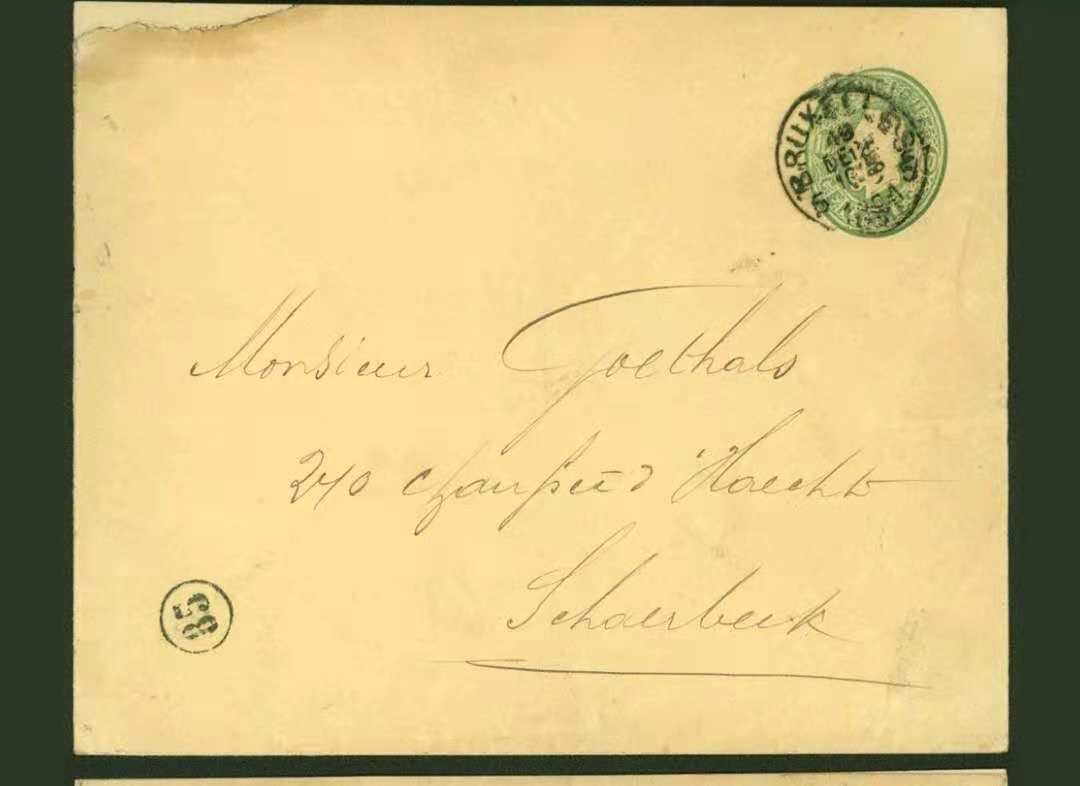 BRUXELLES
Monsieur Goethals
240 chaussée d'Haecht
Schaerbeek
35